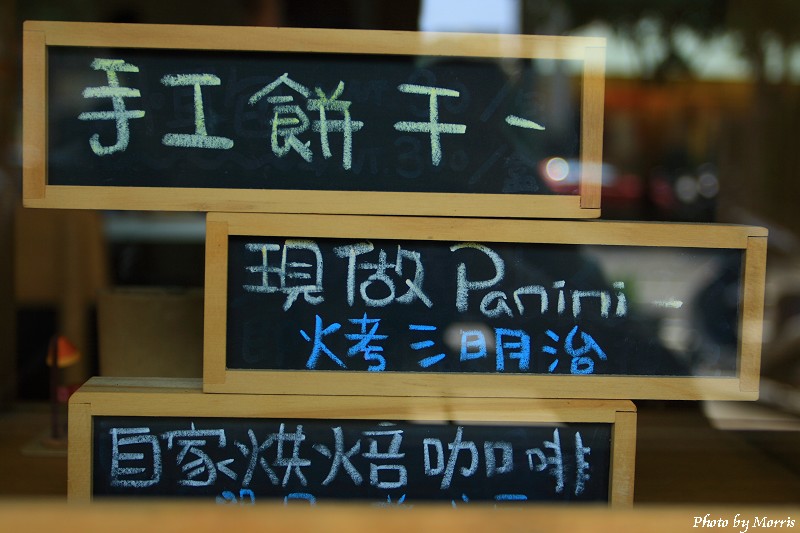 手工餅干、
現做Panini、
烤三明治
自家烘焙咖啡
Photo by Morris